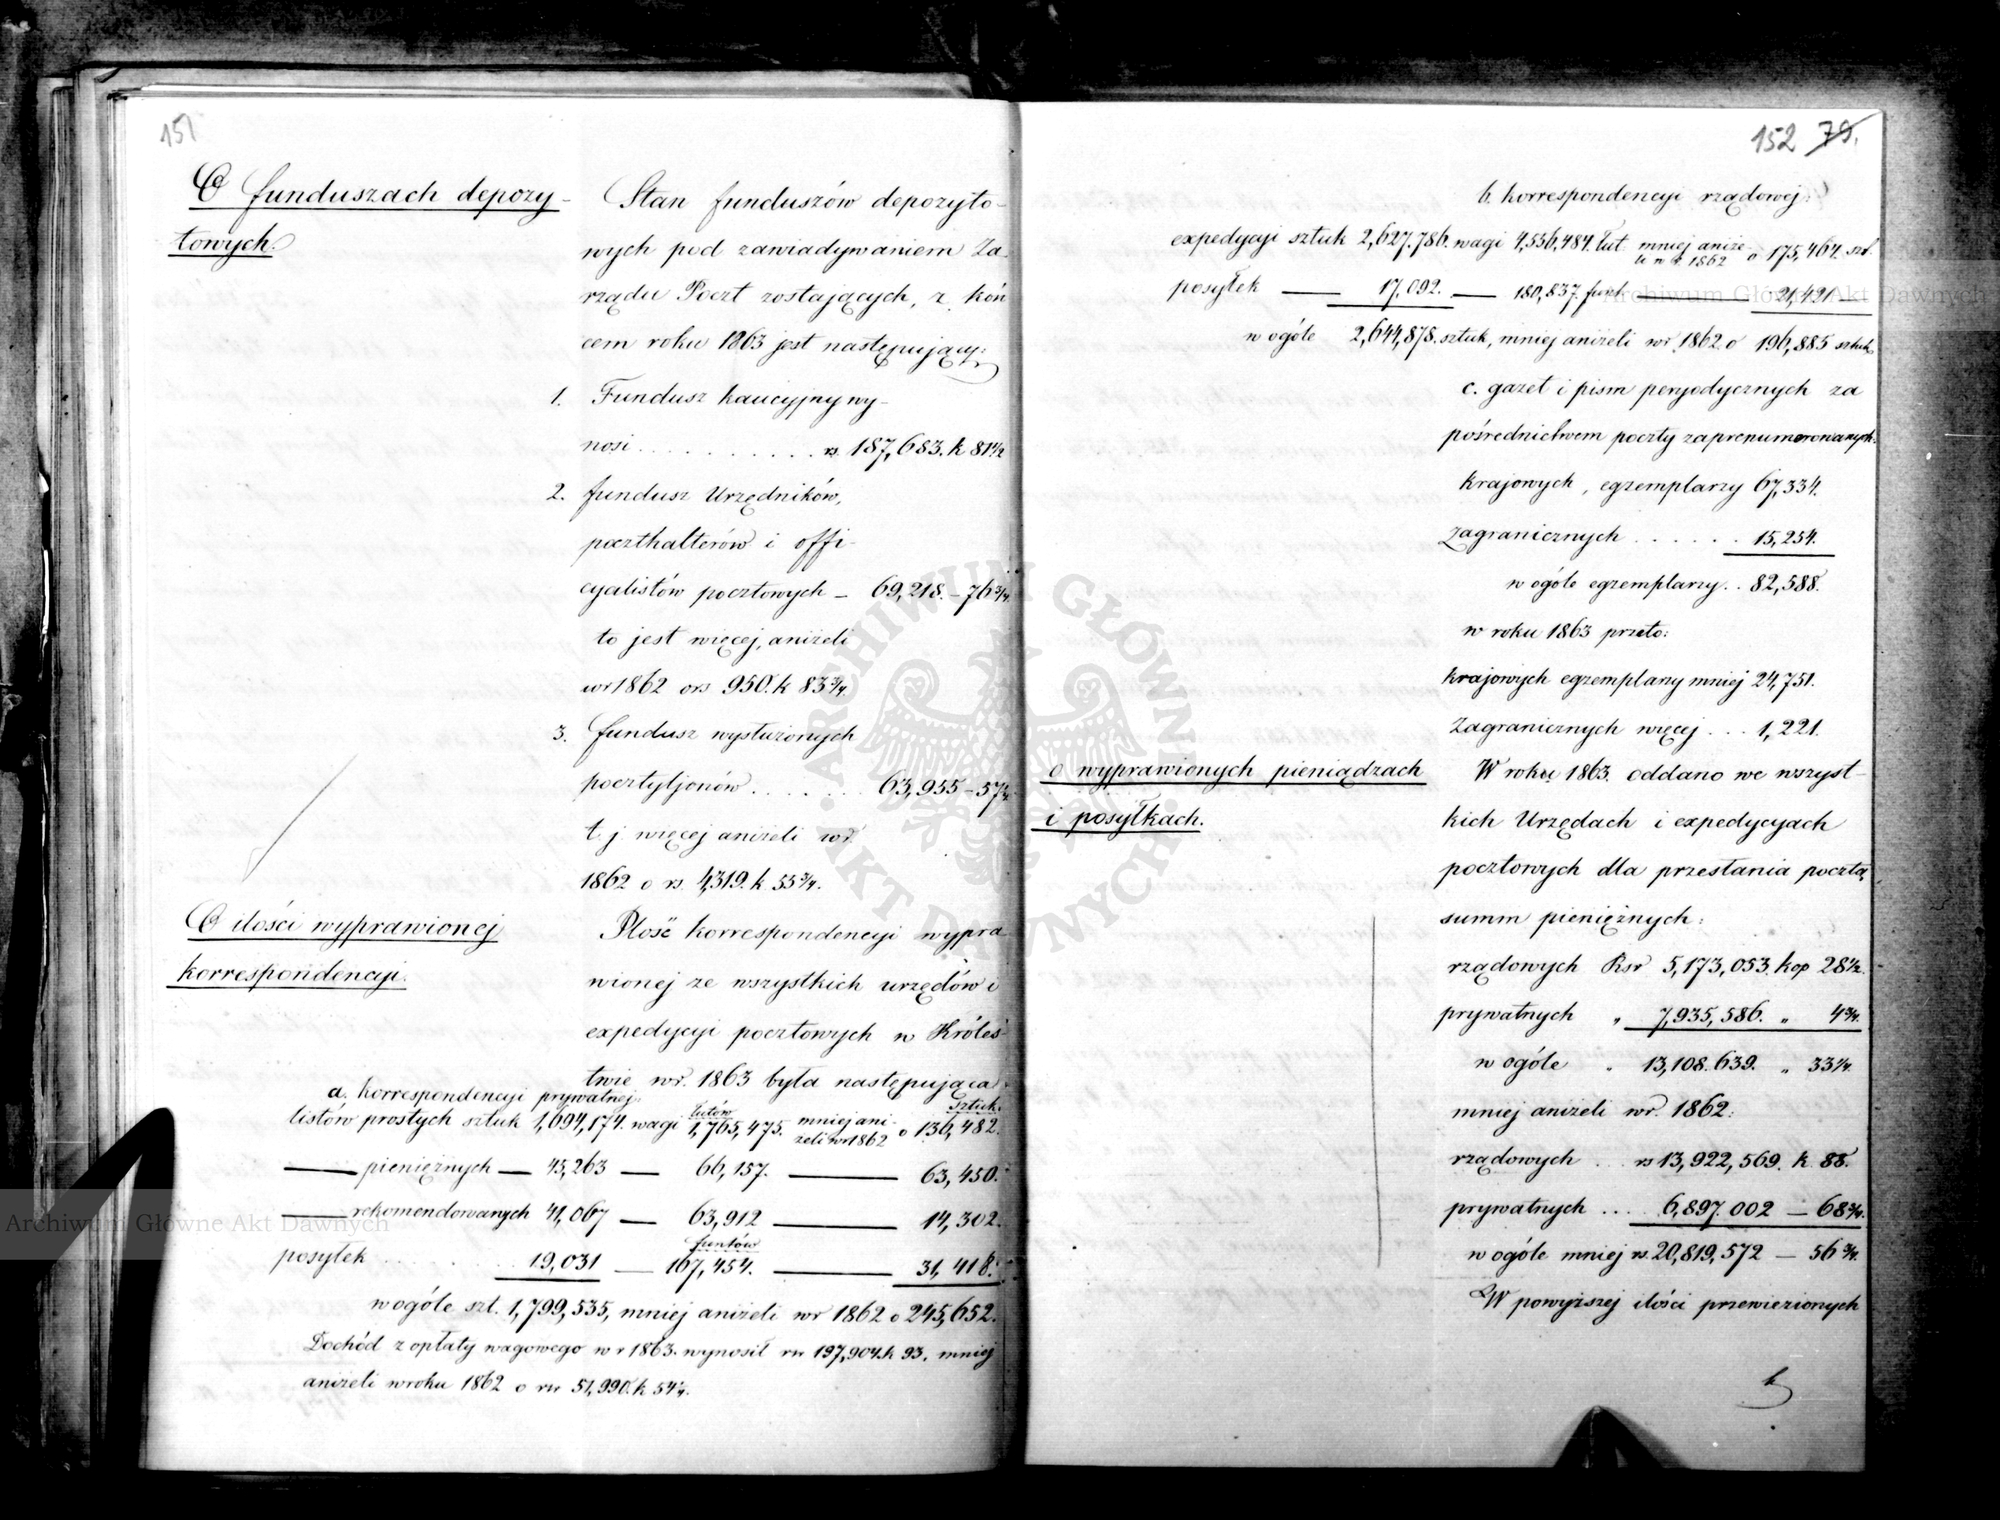 151
O funduszach depozy-
towych.
Stan funduszów depozyto-
wych pod zawiadywaniem Za-
rządu Poczt zostających, z koń
cem roku 1863 jest następujący:
1. Fundusz kaucyjny wy-
nosi . . . . . . . . . . rs 187,683. k 81 1/2
2. fundusz Urzędników,
poczthalterów i offi-
cyalistów pocztowych – 69,218. – 76 3/4
to jest więcej, aniżeli
wr 1862 o rs 950. k 83 3/4.
3. fundusz wysłużonych
pocztyljonów . . . . . . . 63,955 – 57
t. j. więcej aniżeli wr
1862 o rs. 4319. k 55 3/4.
O ilości wyprawionej
korrespondencyi.
Ilość korrespondencyi wypra
wionej ze wszystkich urzędów i
expedycyi pocztowych w Króles
twie wr. 1863 była następująca
a. korrespondencyi prywatnej:
listów prostych sztuk 1,694,174. wagi łutów 1,765,475. mniej ani-żeli wr 1862 o sztuk. 136,482.
— pieniężnych — 45,263 — 66,157. — 63,450.
— rekomendowanych 41,067 — 63,912 — 14,302.
posyłek . . . . . 19,031 — funtów 167,454. — 31,418.
w ogóle szt. 1,799,535, mniej aniżeli wr 1862 o 245,652.
Dochód z opłaty wagowego w r 1863. wynosił rsr 197,904. k 93. mniej
aniżeli w roku 1862 o rsr 51,990. k 54
152 79.
b. korrespondencyi rządowej:
expedycyi sztuk 2,627.786. wagi 4,536,484. łut. mniej aniże-li w r. 1862 o 175,464. szt.
posyłek — 17,092. — 180,837. funt — 21,421 —
w ogóle 2,644,878. sztuk, mniej aniżeli wr 1862 o 196,885 sztuk
c. gazet i pism peryodycznych za
pośrednictwem poczty zaprenumerowanych:
krajowych, egzemplarzy 67,334.
zagranicznych . . . . . . 15,254.
w ogóle egzemplarzy . . 82,588.
w roku 1863 przeto:
krajowych egzemplarzy mniej 24,751.
zagranicznych więcej . . . 1,221.
o wyprawionych pieniądzach
i posyłkach.
W roku 1863. oddano we wszyst-
kich Urzędach i expedycyach
pocztowych dla przesłania pocztą,
summ pieniężnych:
rządowych Rsr 5,173,053. kop 28 1/2.
prywatnych „ 7,935,586. „ 4 3/4.
w ogóle „ 13,108.639. „ 33 1/4.
mniej aniżeli wr. 1862:
rządowych . . . rs 13,922,569. k. 88.
prywatnych . . . 6,897.002 — 68 3/4.
w ogóle mniej rs. 20,819,572 — 56 3/4.
W powyższej ilości przewiezionych
Archiwum Główne Akt Dawnych
Archiwum Główne Akt Dawnych
ARCHIWUM GŁÓWNE AKT DAWNYCH